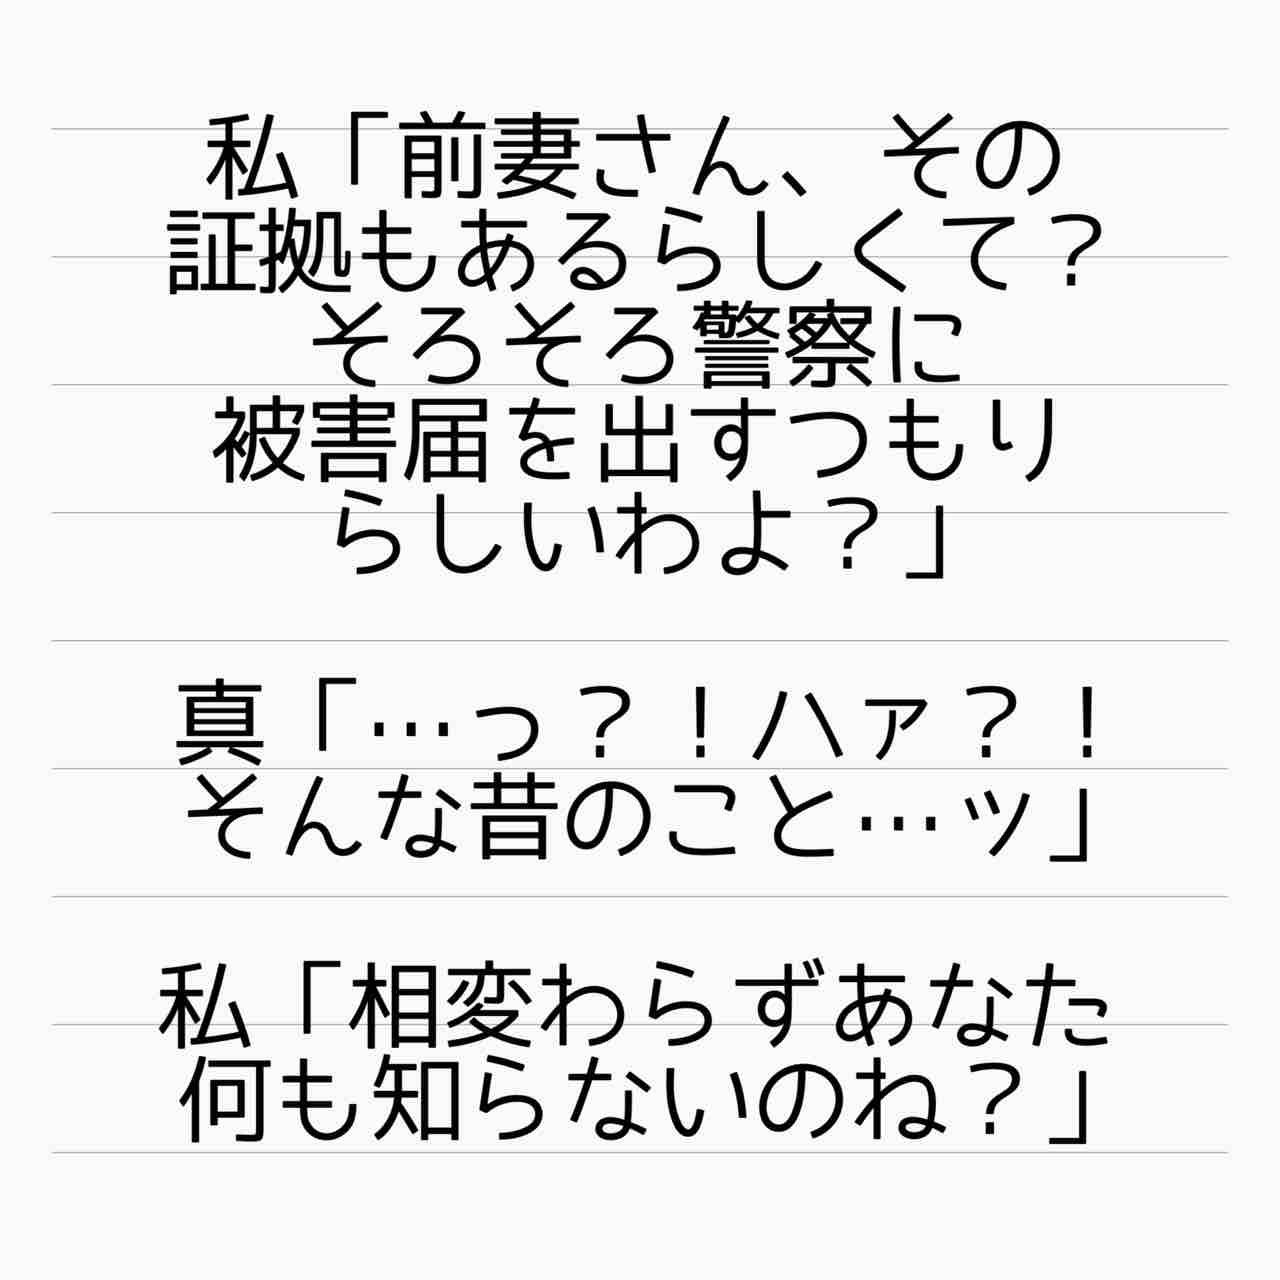 私「前妻さん、その
証拠もあるらしくて？
そろそろ警察に
被害届を出すつもり
らしいわよ？」
真「…っ？！ハァ？！
そんな昔のこと…ッ」
私「相変わらずあなた
何も知らないのね？」